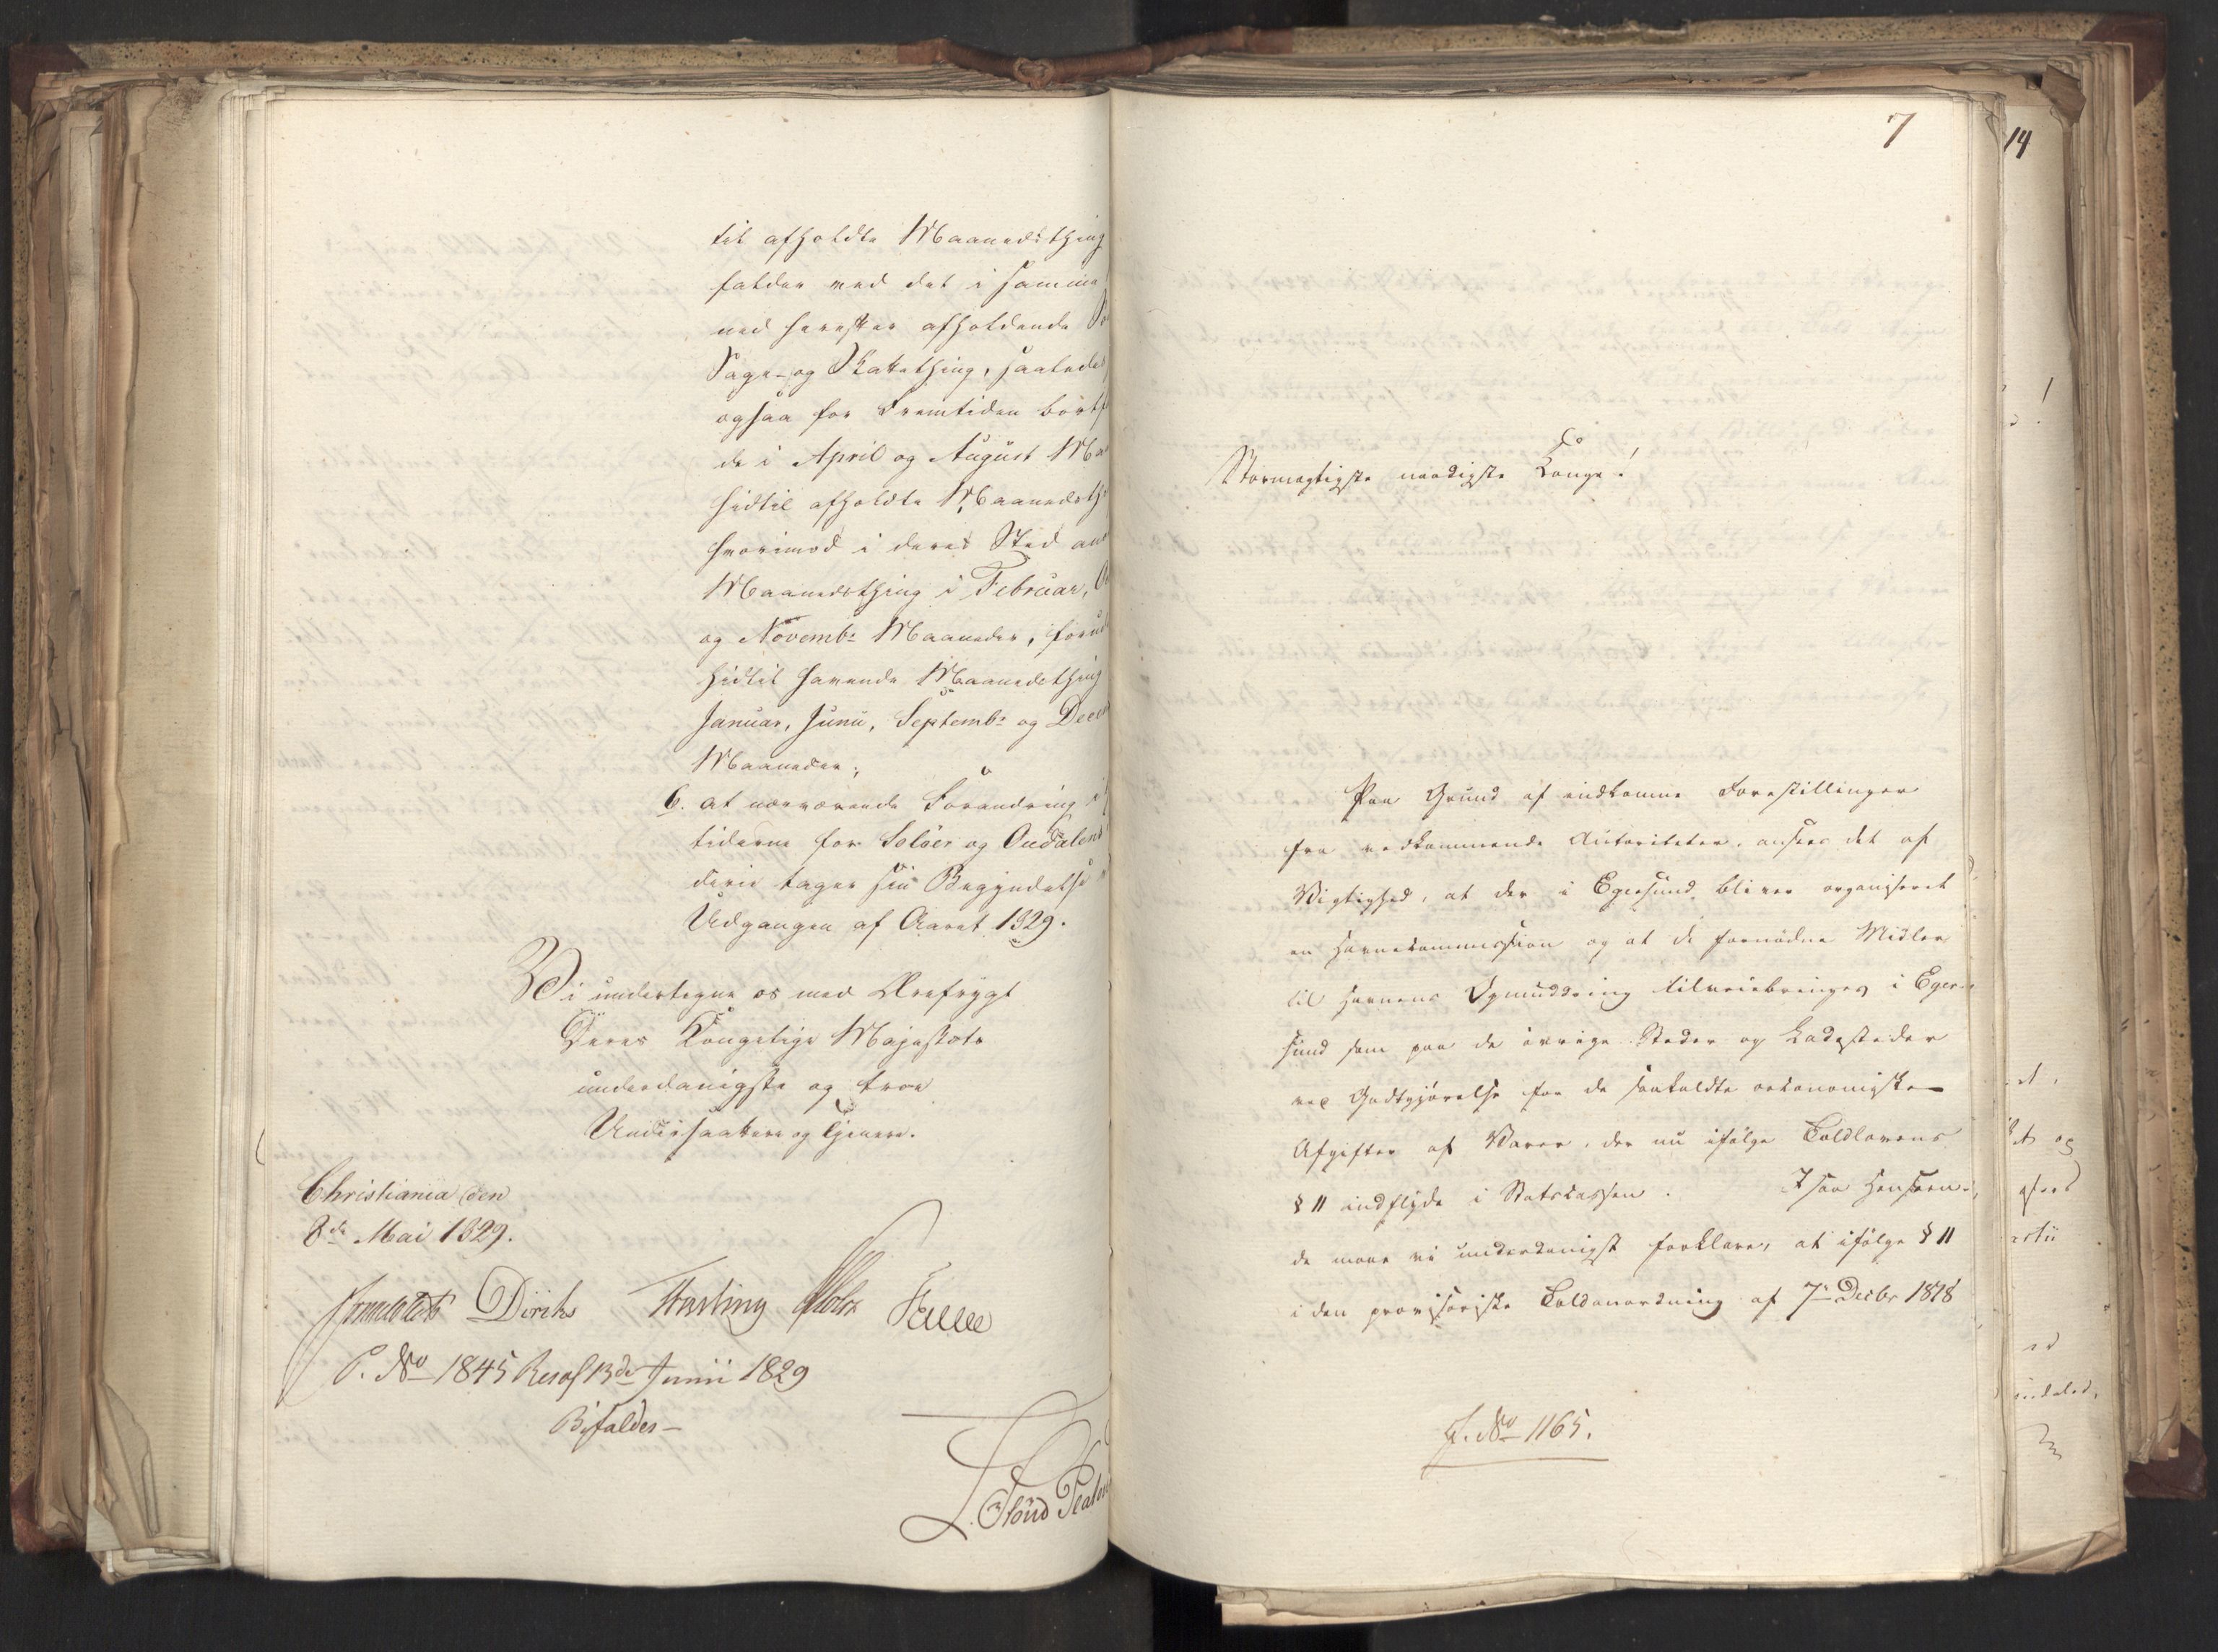 til afholdte Maanedsthing
falder med det i samme
ned herefter afholdende
Sage- og Skattething, saaledes
ogsaa for Fremtiden bortf
de i April og August Ma
hidtil afholdte Maanedsth
hvorimod i deres Sted
Maanedsthing i Februar,
og Novembr Maaneder, forud
hidtil havende Maanedsthing
Januar, Junii, Septembr og Decem
Maaneder;
6. at nærværende Forandring i
tiderne for Soløer og Oudalens
derie tager sin Begyndelse
Udgangen af Aaret 1829.
Vi undertegne os med Ærefrygt
Deres Kongelige Majestæts
underdanigste og troe
Undersaattere og Tjenere.
Christiania den
8de Mai 1829.
Diriks Fasting Holst
P. No 1845 Resol 13de Junii 1829
Bifaldes-
7
14
Stormægtigste naadigste Konge!
Paa Grund af indkomne Forestillinger
fra vedkommende Autoriteter, ansees det af
Vigtighed, at der i Egersund bliver organiseret
en Havnekommission og at de fornødne Midler
til Havnens Opmuddring tilveiebringes i Eger-
sund som paa de øvrige Steder og Ladesteder
ved Godtgjørelse for de saakaldte oekonomiske
Afgifter af Varer, der nu ifølge Toldlovens
§ 11 indflyde i Statskassen. I saa Henseen-
de maae vi underdanigst forklare, at ifølge § 11
i den provisoriske Toldanordning af 7de Decbr 1818
J. No 1165.